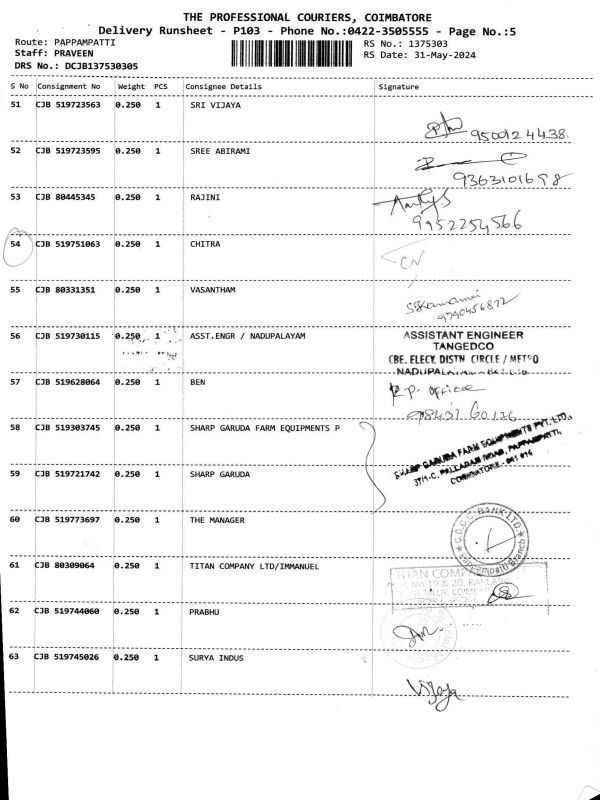 THE PROFESSIONAL COURIERS, COIMBATORE
Delivery Runsheet - P103 - Phone No.:0422-3505555 - Page No.:5
Route: PAPPAMPATTI RS No.: 1375303
Staff: PRAVEEN RS Date: 31-May-2024
DRS No.: DCJB137530305
S No Consignment No Weight PCS Consignee Details Signature
51 CJB 519723563 0.250 1 SRI VIJAYA
9500124438
52 CJB 519723595 0.250 1 SREE ABIRAMI
9363101698
53 CJB 80445345 0.250 1 RAJINI
9952254566
54 CJB 519751063 0.250 1 CHITRA
CN
55 CJB 80331351 0.250 1 VASANTHAM
9790456872
56 CJB 519730115 0.250 1 ASST.ENGR / NADUPALAYAM ASSISTANT ENGINEER
TANGEDCO
CBE. ELECY. DISTN CIRCLE / METRO
57 CJB 519628064 0.250 1 BEN R.P. office
98431 60126
58 CJB 519303745 0.250 1 SHARP GARUDA FARM EQUIPMENTS P
SHARP GARUDA FARM EQUIPMENTS PVT. LTD.,
37/1-C, PALLADAM ROAD, PAPPAMPATTI,
COIMBATORE - 641 016
59 CJB 519721742 0.250 1 SHARP GARUDA
60 CJB 519773697 0.250 1 THE MANAGER
C.D.C.C. BANK LTD.
Pappampatti Branch
61 CJB 80309064 0.250 1 TITAN COMPANY LTD/IMMANUEL
TITAN COMP
62 CJB 519744060 0.250 1 PRABHU
63 CJB 519745026 0.250 1 SURYA INDUS
Vijaya